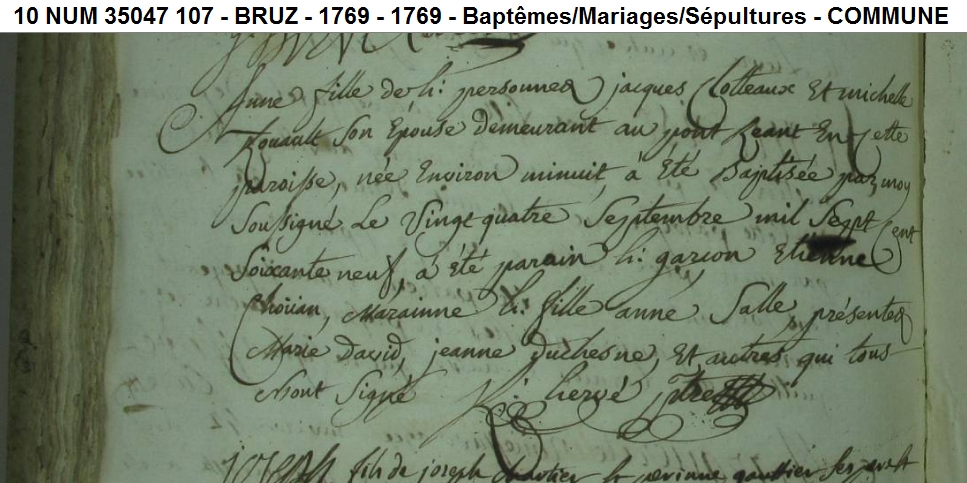 10 NUM 35047 107 - BRUZ - 1769 - 1769 - Baptêmes/Mariages/Sépultures - COMMUNE
Anne fille de h: personnes jacques Cloteaux Et michelle
Rouault Son Epouse demeurant au pont Reant En Cette
paroisse, née Environ minuit à Eté Baptisée par moy
Soussigné Le Vingt quatre Septembre mil Sept Cent
Soixante neuf, à Eté parain h: garçon Etienne
Choüan, Marainne h: fille anne Salle, présentes
Marie David, jeanne Duchesne, Et autres qui tous
Nont Signé hervé ptre
joseph fils de joseph Et perinne gautier